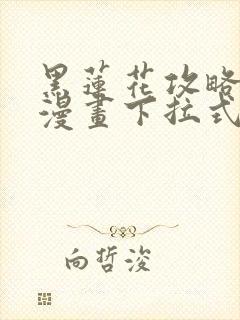 黑蓮花攻略
漫畫下拉式
向哲浚